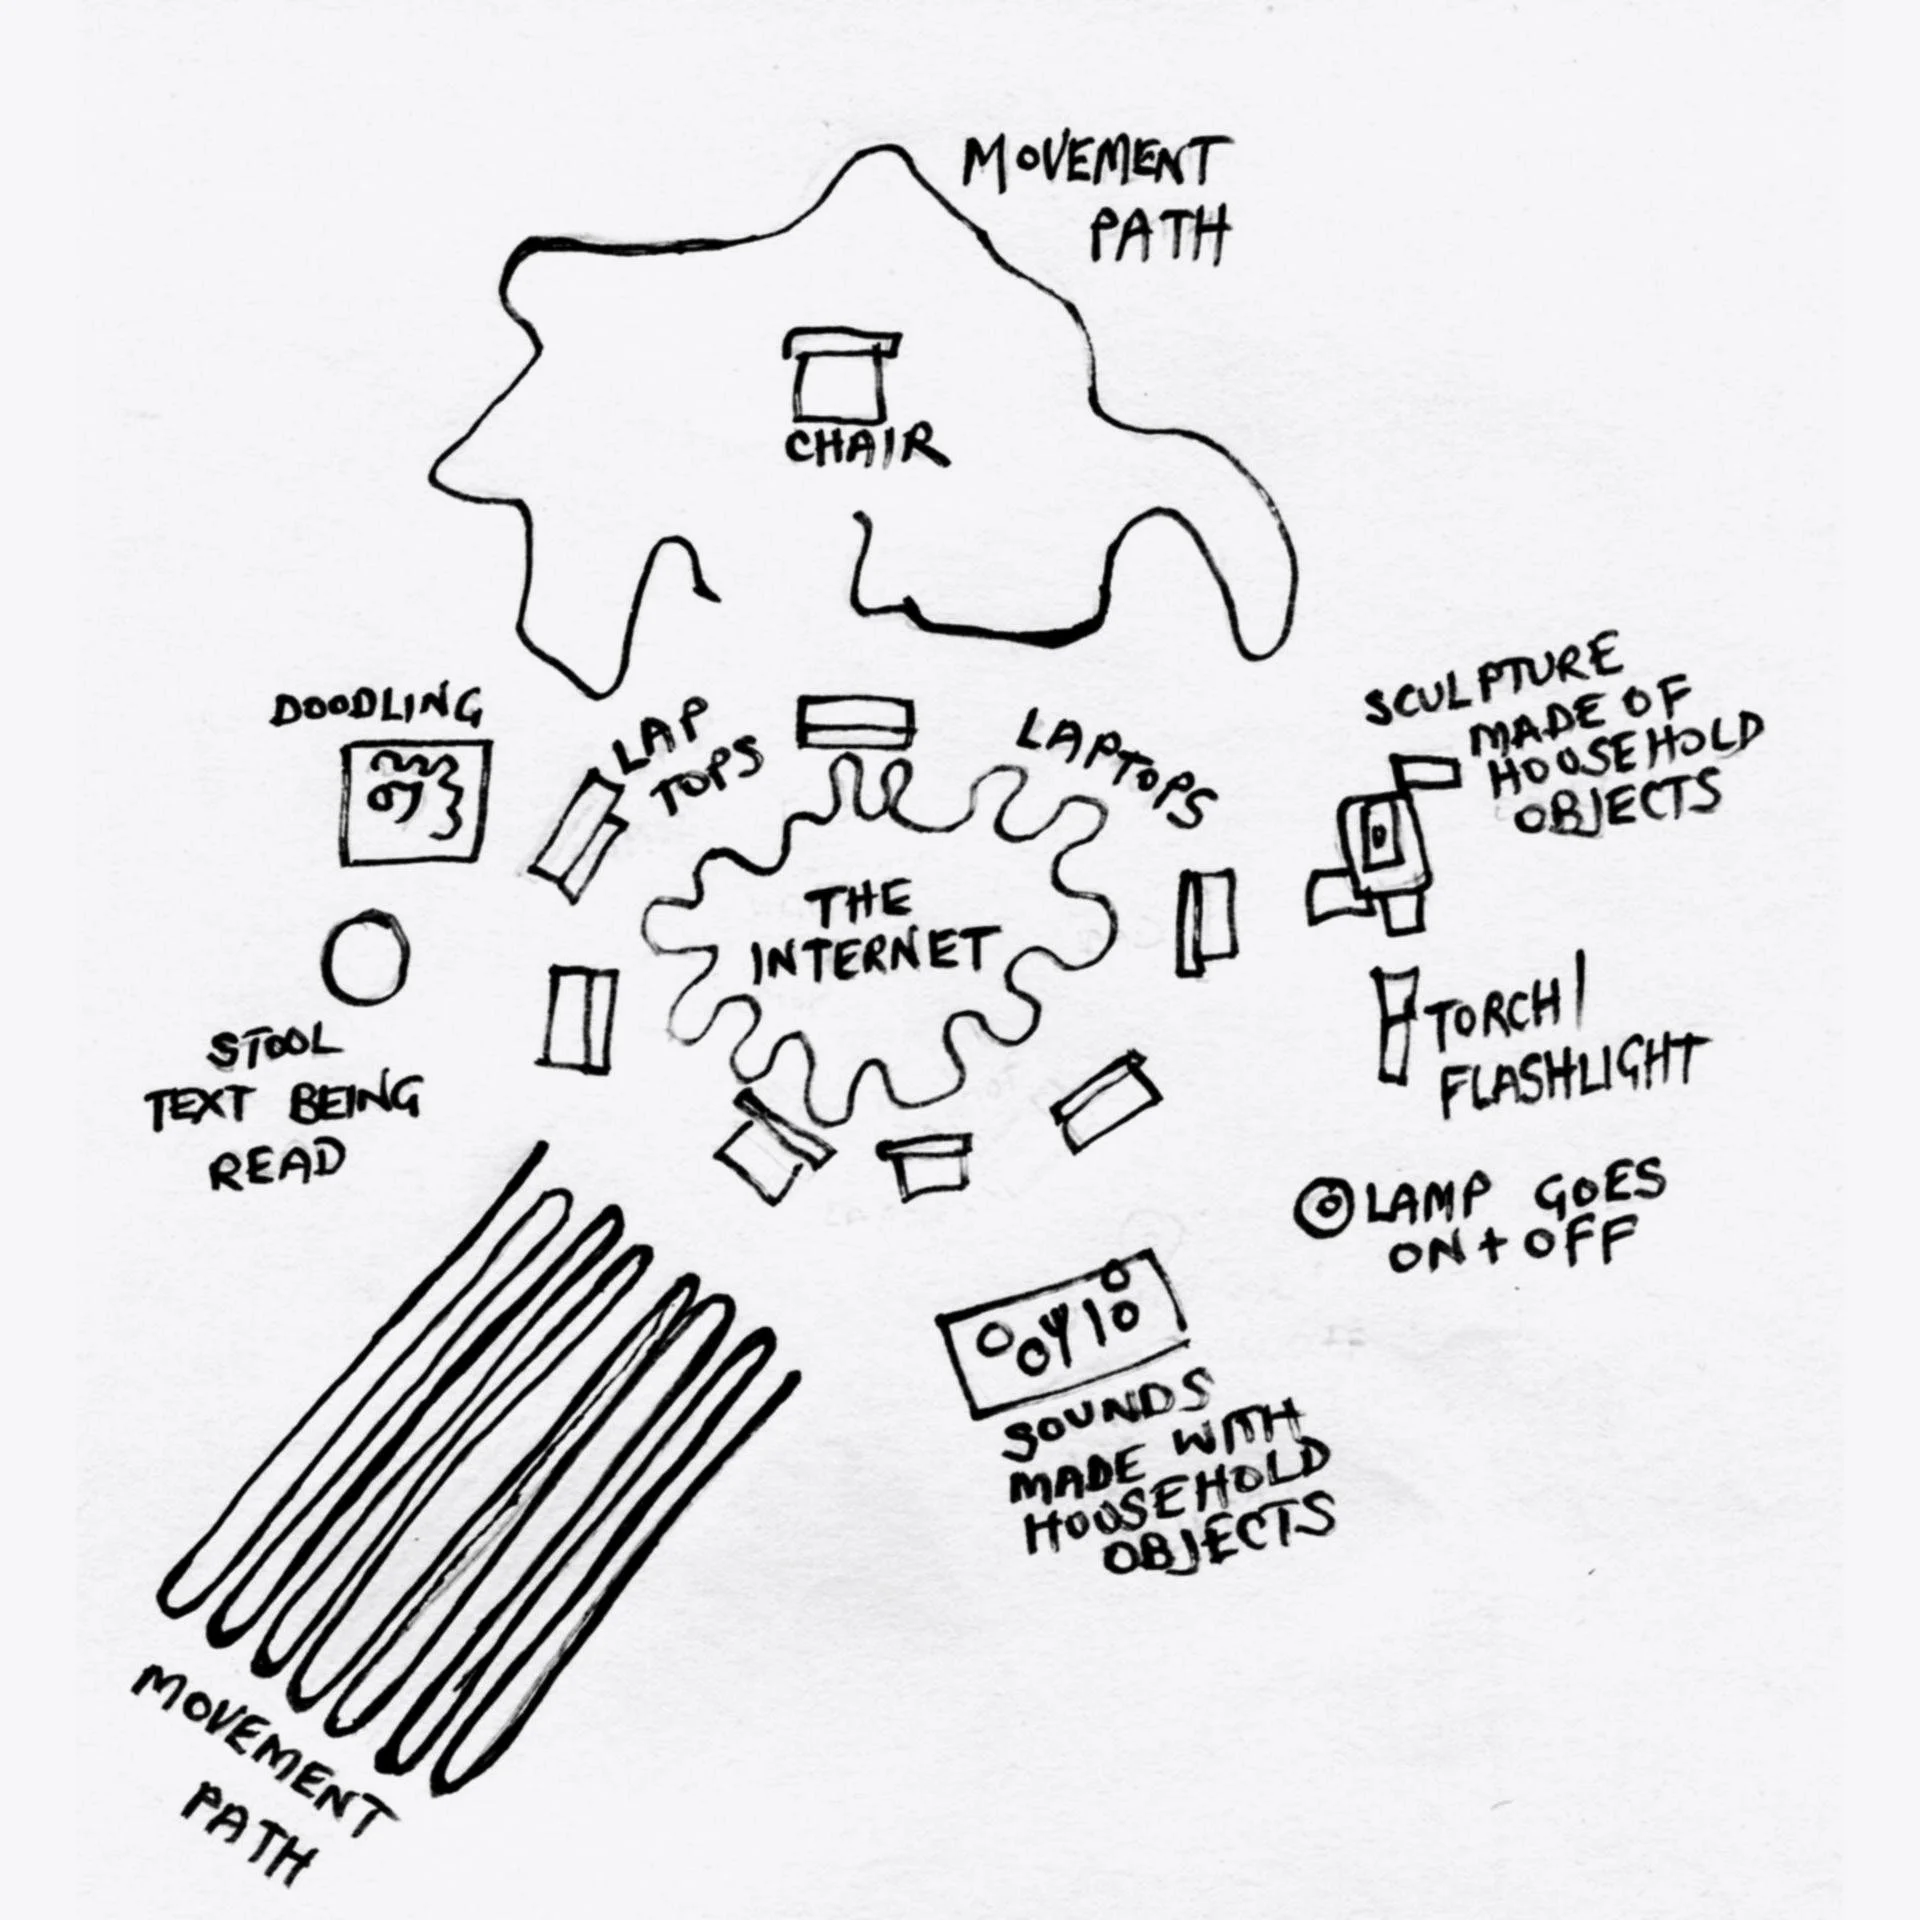 MOVEMENT
PATH
CHAIR
DOODLING
LAP
TOPS
LAPTOPS
SCULPTURE
MADE OF
HOUSEHOLD
OBJECTS
THE
INTERNET
STOOL
TEXT BEING
READ
TORCH/
FLASHLIGHT
LAMP GOES
ON + OFF
SOUNDS
MADE WITH
HOUSEHOLD
OBJECTS
MOVEMENT
PATH